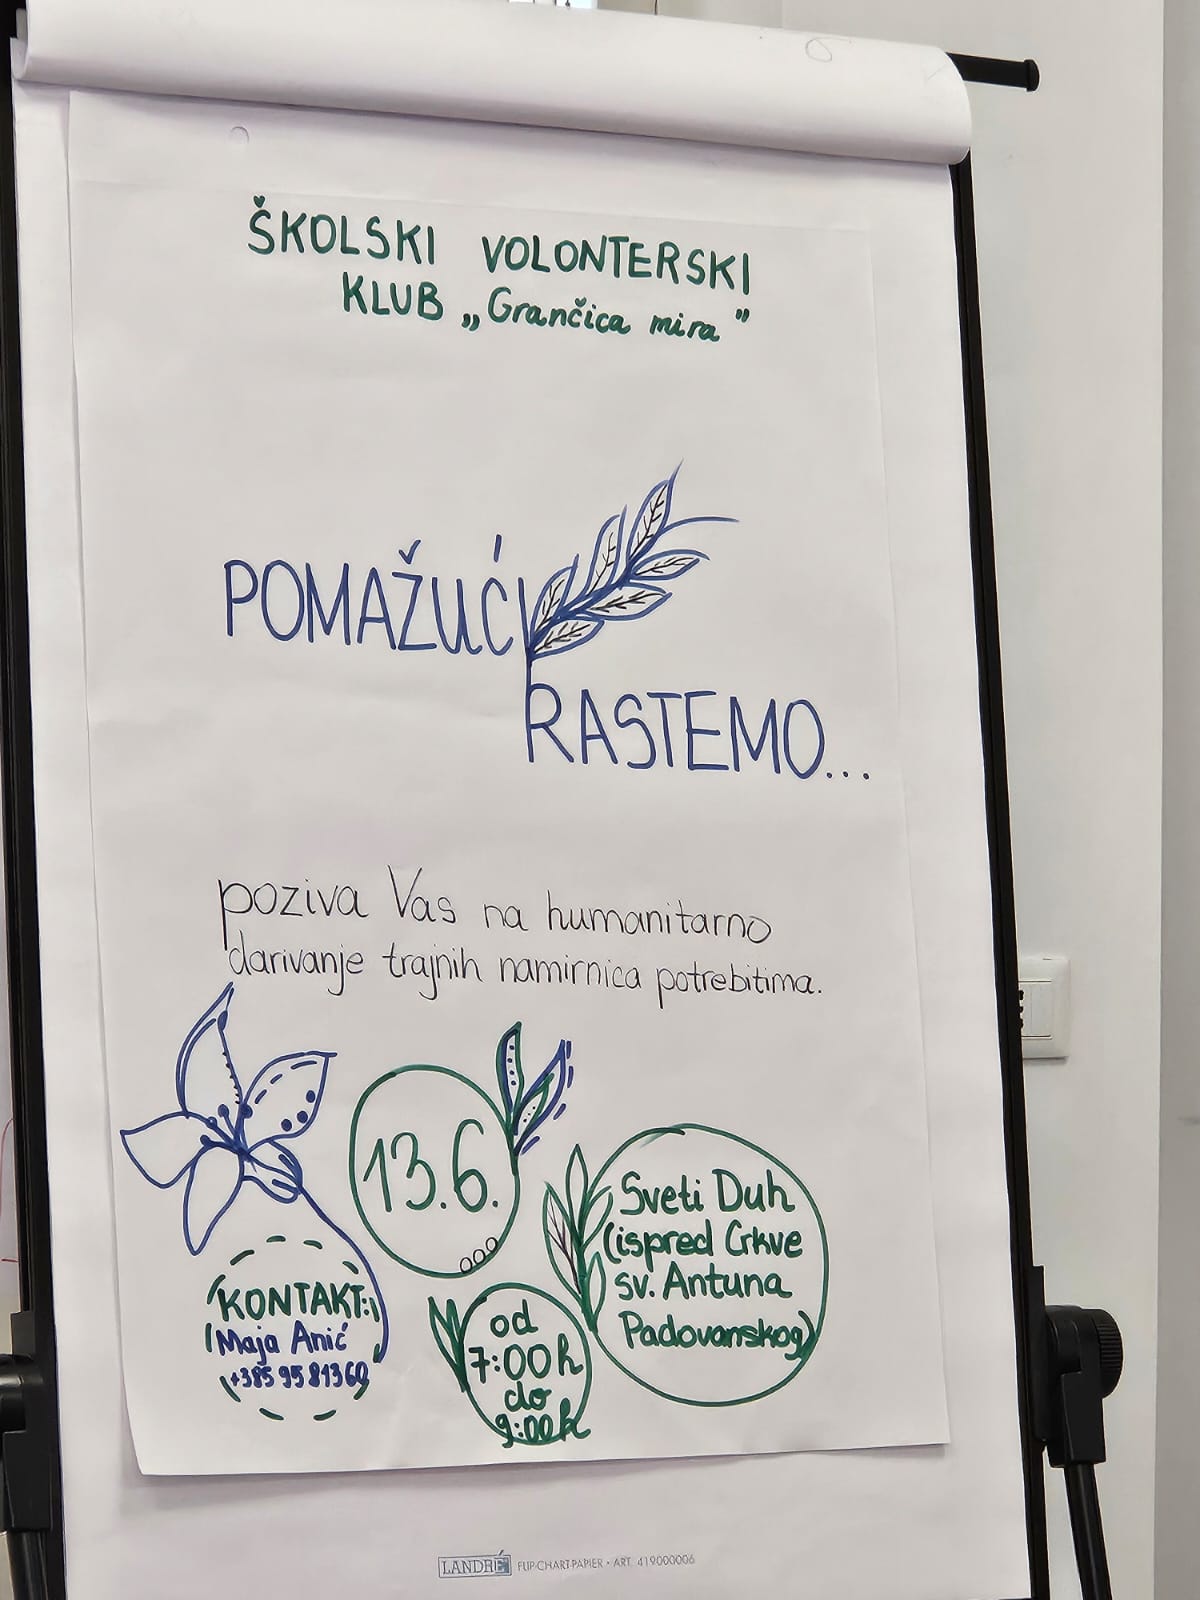 ŠKOLSKI VOLONTERSKI
KLUB „Grančica mira"
POMAŽUĆI
RASTEMO...
poziva Vas na humanitarno
darivanje trajnih namirnica potrebitima.
13.6.
Sveti Duh
(ispred Crkve
sv. Antuna
Padovanskog)
KONTAKT:
Maja Anić
+385 95 81360
od
7:00h
do
9:00h
LANDRÉ FLIP-CHART-PAPIER • ART. 419000006